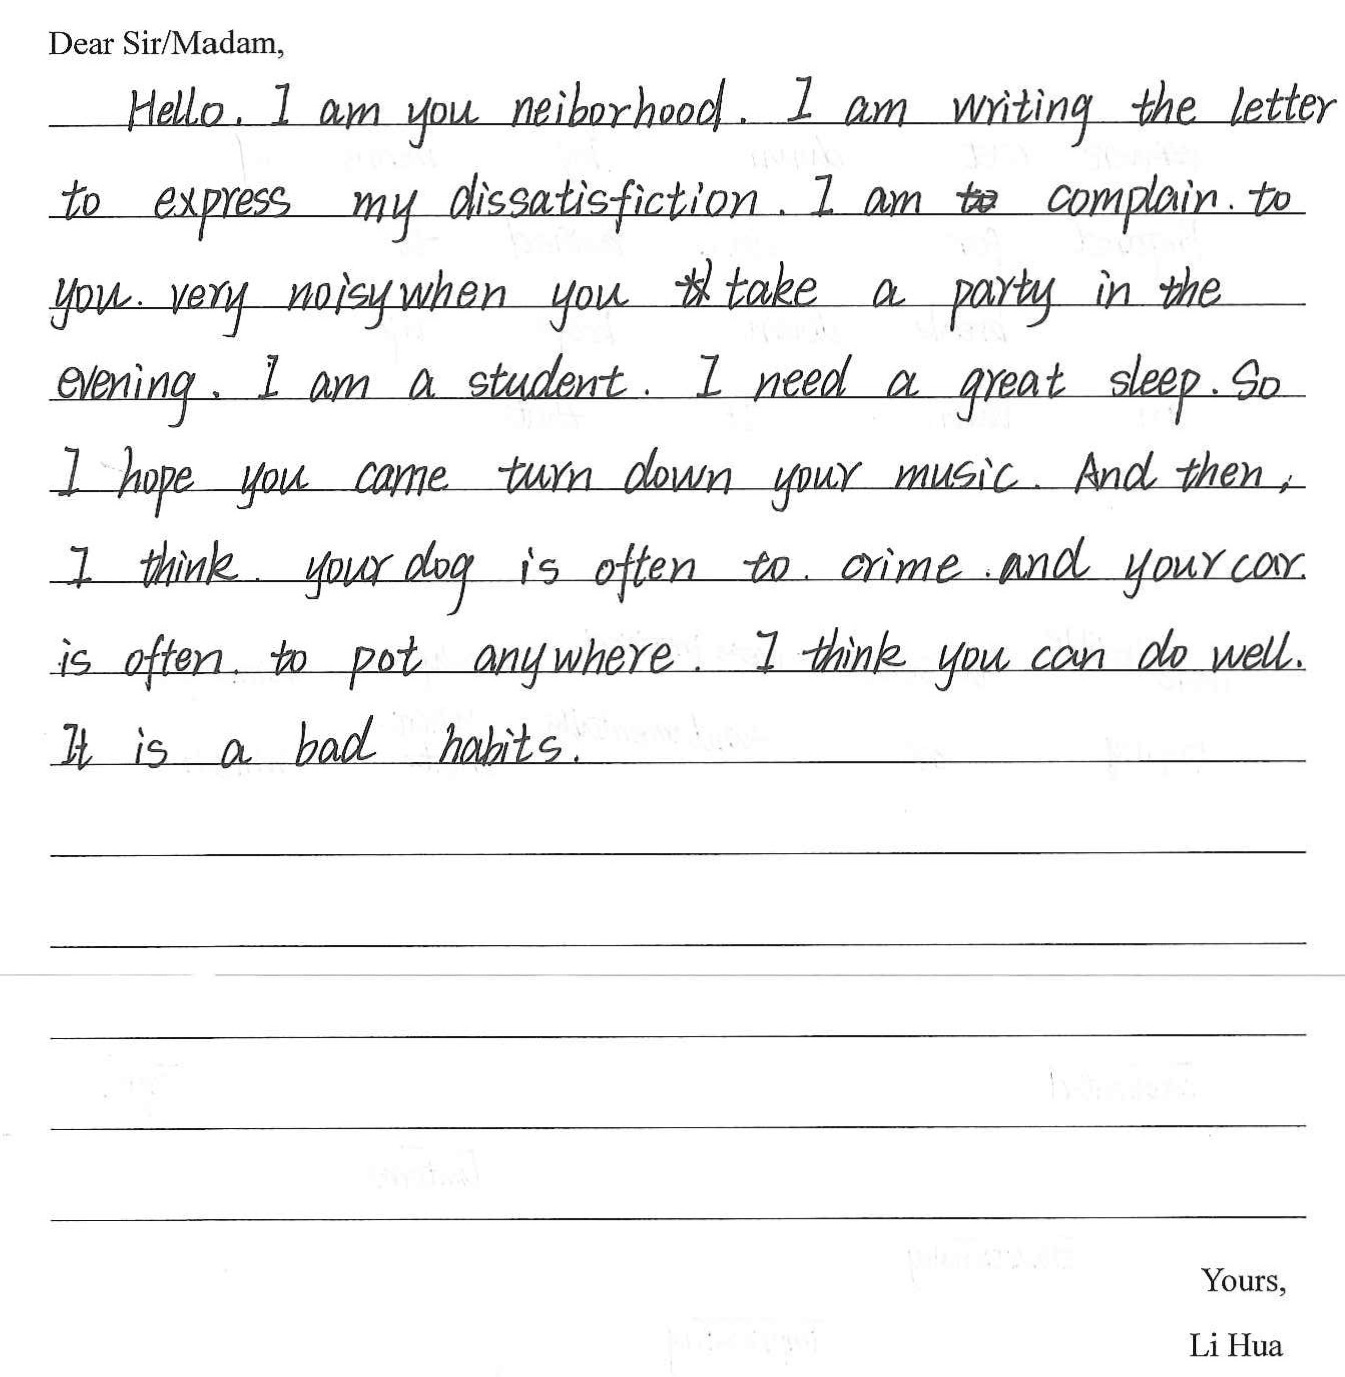 Dear Sir/Madam,
Hello. I am you neiborhood. I am writing the letter
to express my dissatisfiction. I am complain. to
you. very noisy when you take a party in the
evening. I am a student. I need a great sleep. So
I hope you came turn down your music. And then,
I think. your dog is often to. crime. and your car.
is often. to pot anywhere. I think you can do well.
It is a bad habits.
Yours,
Li Hua